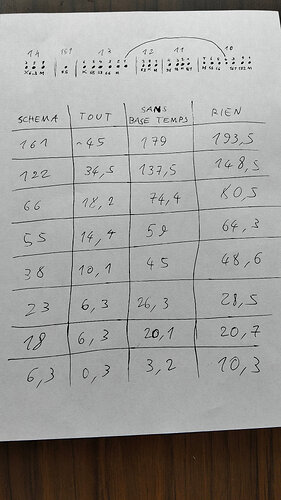 14 151 13 12 11 10
SCHEMA TOUT SANS BASE TEMPS RIEN
161 ~45 179 193,5
122 34,5 137,5 148,5
66 18,2 74,4 80,5
55 14,4 59 64,3
38 10,1 45 48,6
23 6,3 26,3 28,5
18 6,3 20,1 20,7
6,3 0,3 3,2 10,3